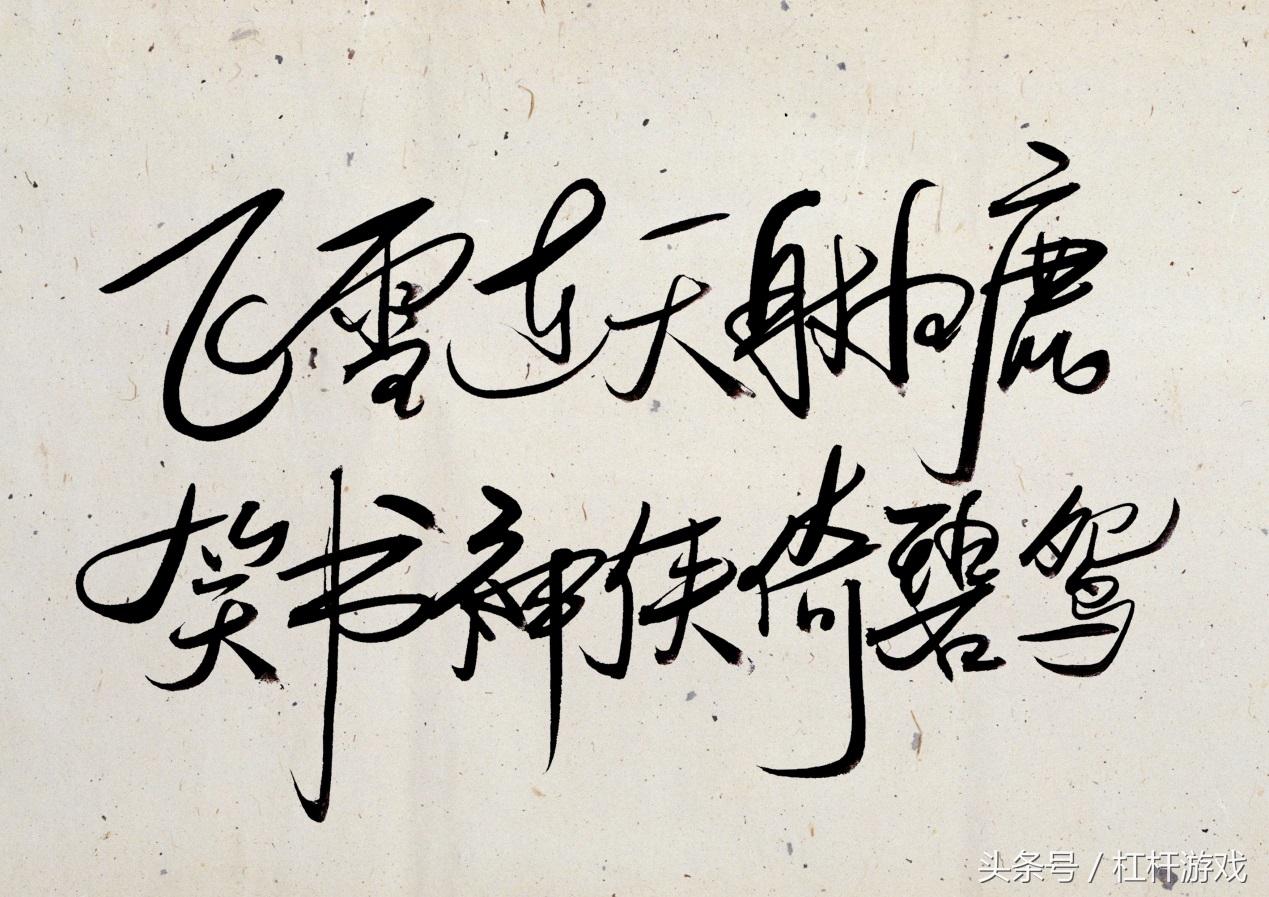 飞雪连天射白鹿
笑书神侠倚碧鸳
头条号 / 杠杆游戏